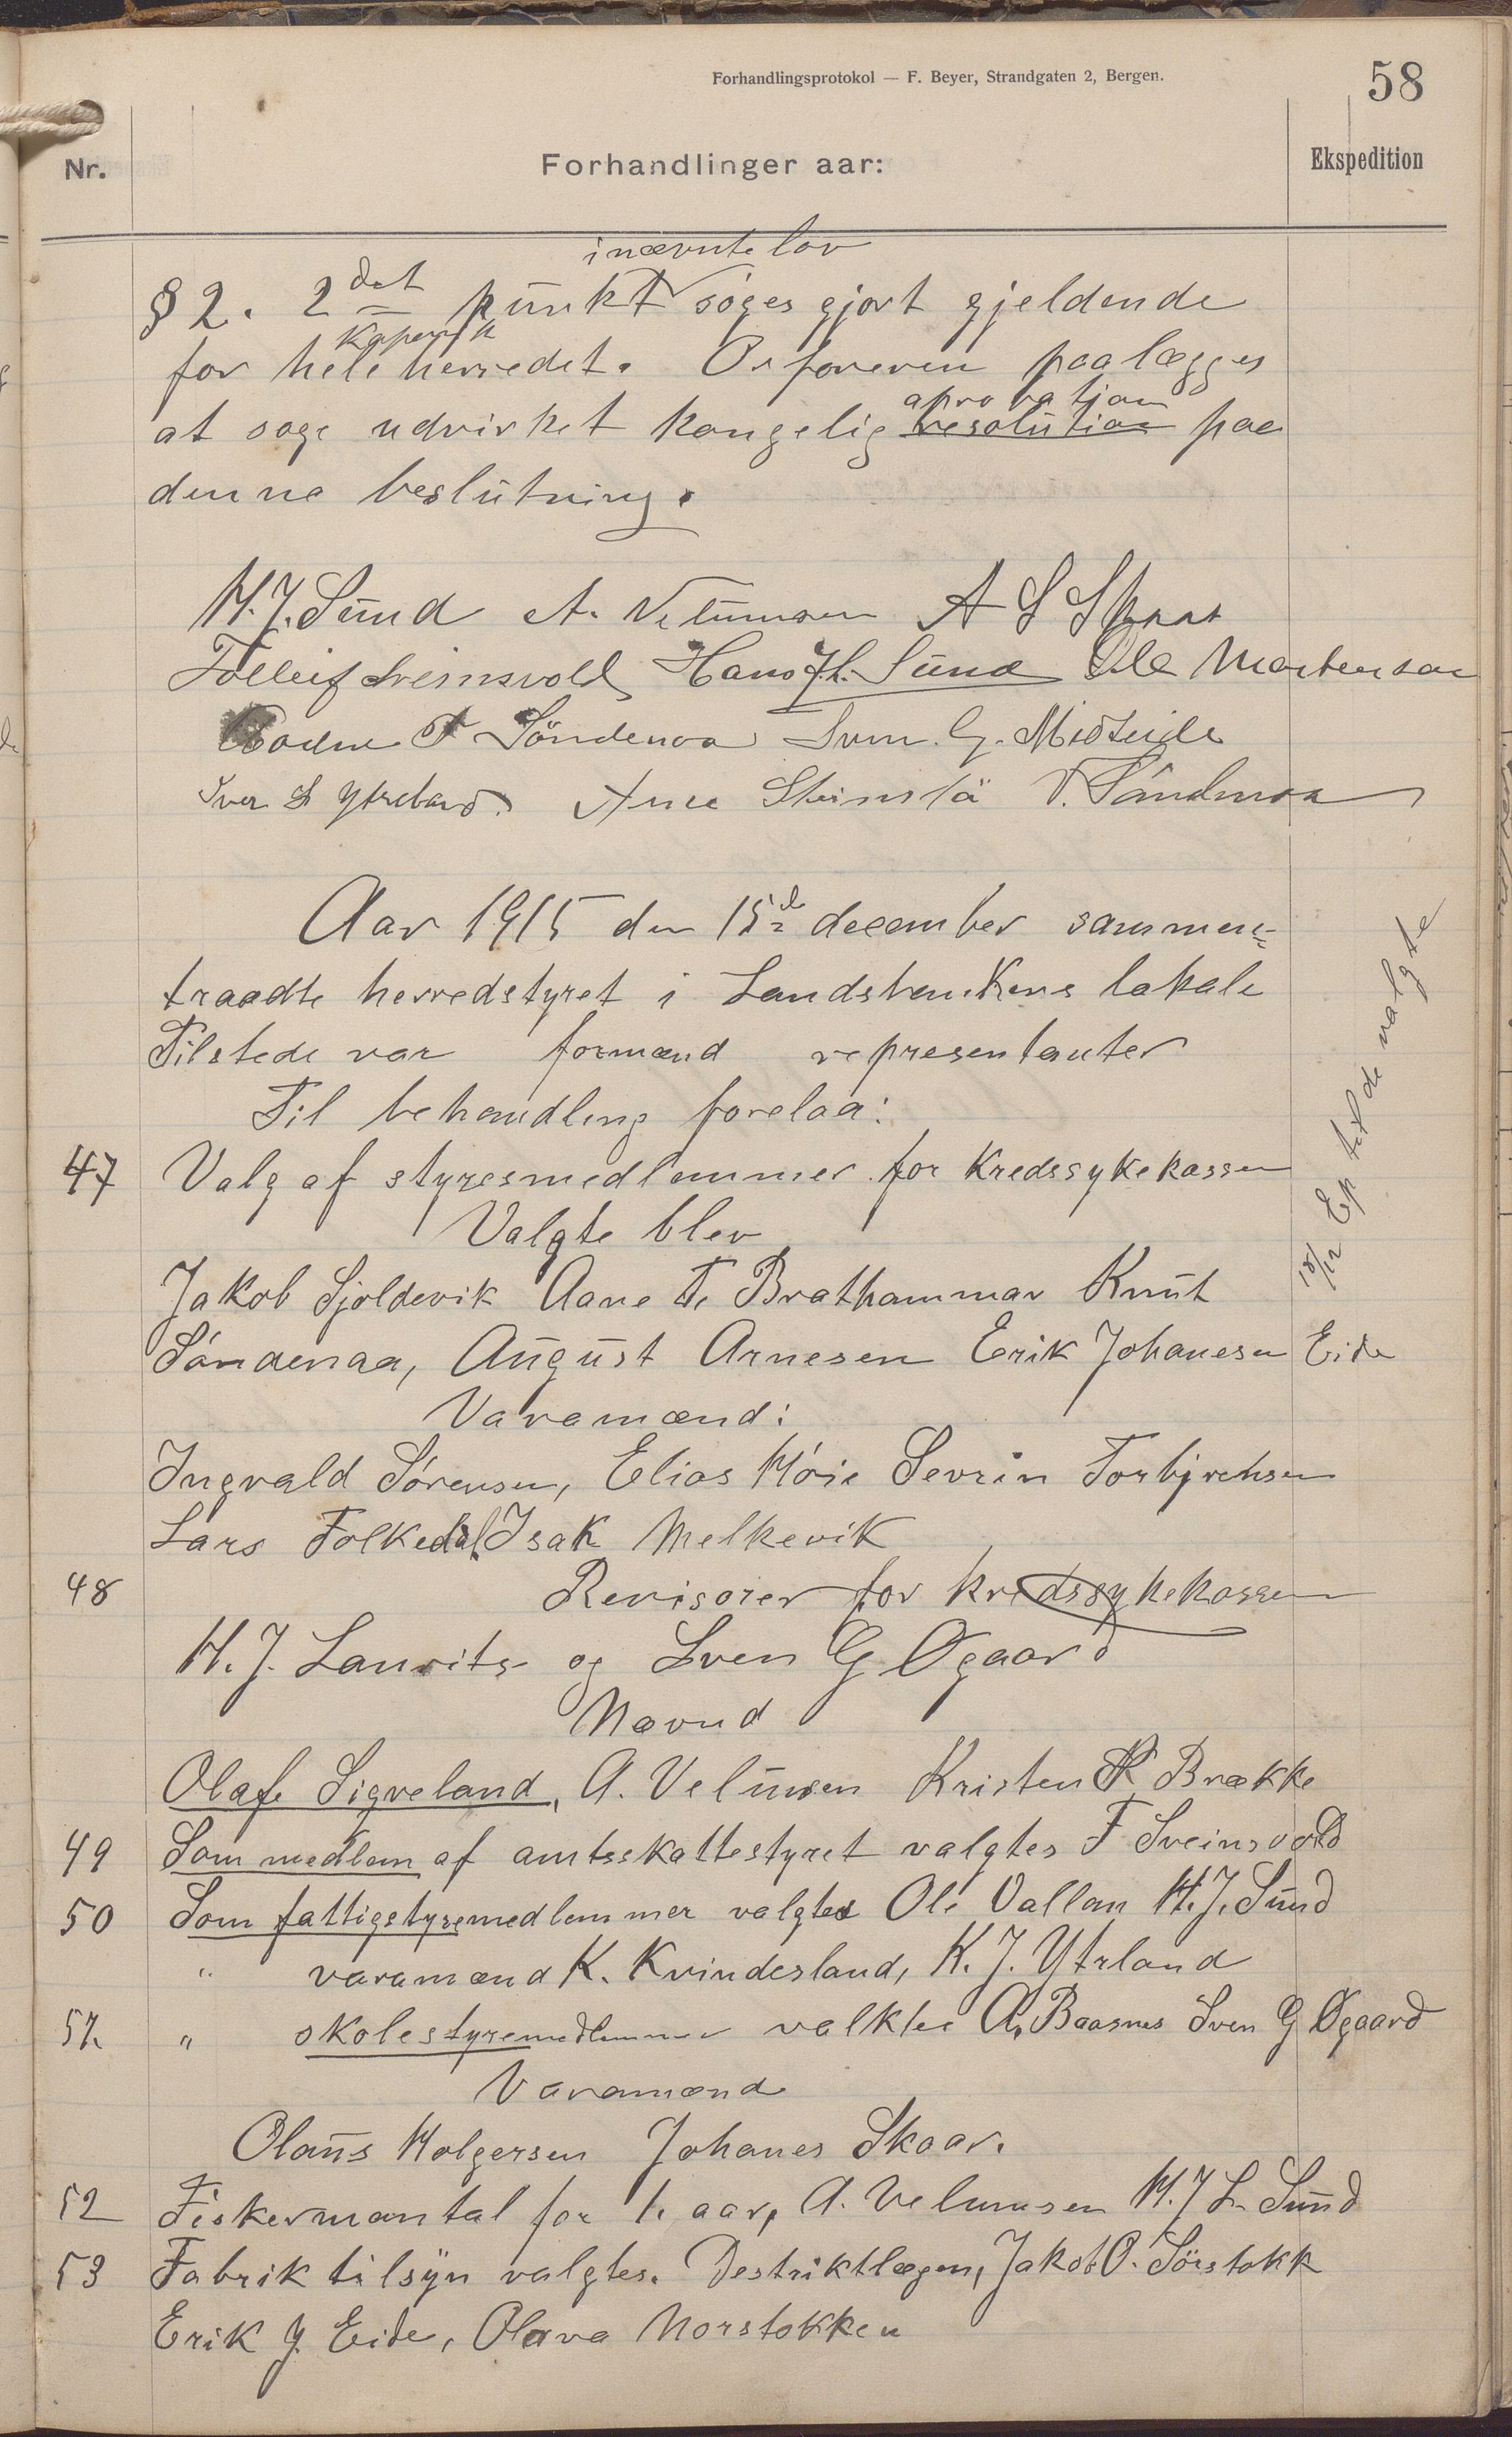 Forhandlingsprotokol — F. Beyer, Strandgaten 2, Bergen.
58
Nr.
Forhandlinger aar:
Ekspedition
i nævnte lov
§ 2. 2det punkt søges gjort gjeldende
for hele herredet. Ordføreren paalægges
aprobatjon
at søge udvirket kongelig resolution paa
denne beslutning.
H. J. Sund A. Velumsen A S Skaar
Tolleif Sveinsvold Hans J. L. Sund Ole Mortensen
F Söndenaa Sven. G. Midteide
Iver L Ytreland. Arne V. Söndenaa
Aar 1915 den 15de december sammen-
traadte herredstyret i Landsbankens lokale
Tilstede var formænd representanter
Til behandling forelaa:
47 Valg af styresmedlemmer for Kredssykekassen
15/12 Ep til de valgte
Valgte blev
Jakob Sjoldevik Aane T. Brathammar Knut
Söndenaa, August Arnesen Erik Johanesen Eide
Varamænd:
Ingvald Sörensen, Elias Höie Sevrin Torbjørnsen
Lars Folkedal. Isak Melkevik
48 Revisorer for kredssykekassen
H. J. Laurits og Sven G Øgaard
Nævnd
Olaf Sigveland, A. Velumsen Kristen K Brække
49 Som medlem af amtsskattestyret valgtes F Sveinsvold
50 Som fattigstyremedlemmer valgtes Ole Vallan H. J. Sund
" varamænd K. Kvindesland, K. J. Ytrland
51. " skolestyremedlemmer valktes A. Baasnes Sven G Øgaard
Varamænd
Olaus Holgersen Johanes Skaar.
52 Fiskermantal for 1. aar, A. Velumsen H. J L. Sund
53 Fabriktilsyn valgtes. Destriktlægen, Jakob O. Sörstokk
Erik J. Eide, Olava Norstokken